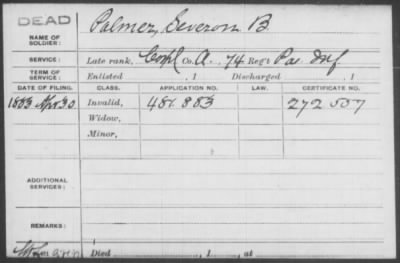 DEAD
NAME OF SOLDIER: Palmer, Severom B.
SERVICE: Late rank, Corpl Co. A. 74 Reg't Pa. Inf
TERM OF SERVICE: Enlisted , 1 Discharged , 1
DATE OF FILING. CLASS. APPLICATION NO. LAW. CERTIFICATE NO.
1883 Apr 30 Invalid, 481 883 272 557
Widow,
Minor,
ADDITIONAL SERVICES:
REMARKS:
Died , 1 , at